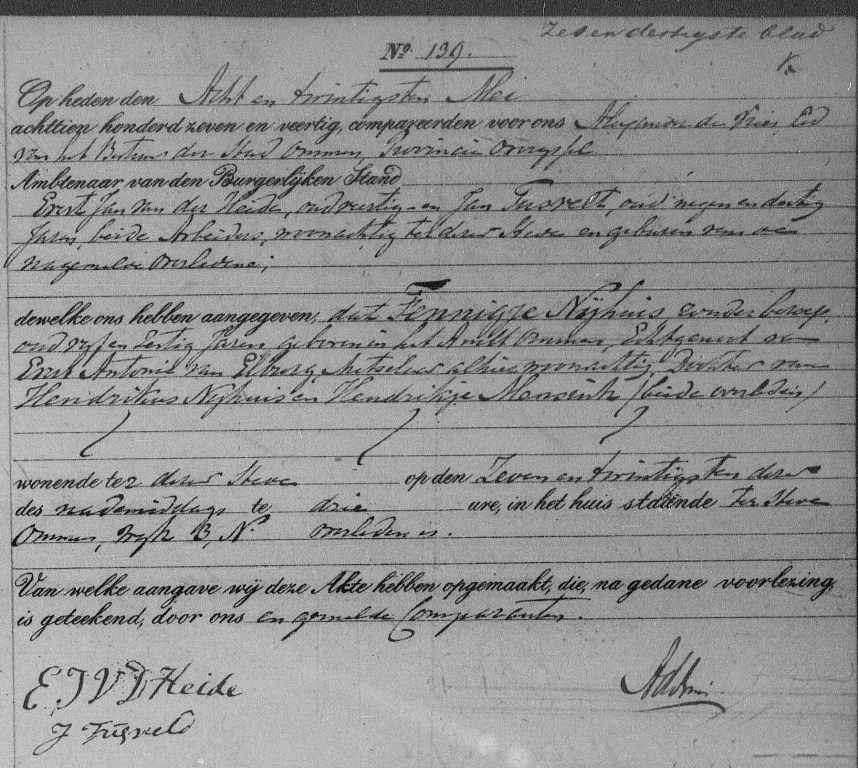 Zes en dertigste blad
No. 139.
Op heden den Acht en twintigsten Mei
achttien honderd zeven en veertig, compareerden voor ons de Vries, Lid
van het Bestuur der Stad Ommen, Provincie Overyssel
Ambtenaar van den Burgerlijken Stand
Evert Jan van der Heide, oud veertig en Jan oud negen en dertig
Jaren, beide Arbeiders, woonachtig ter dezer Stede en geburen van de
nagemelde overledene;
dewelke ons hebben aangegeven, dat Fennigje Nijhuis, zonder beroep,
oud vyf en Jaren geboren in het Ommen, Echtgenoot van
Evert Antonie van Elburg, Metselaar alhier woonachtig, Dochter van
Hendrikus Nijhuis en Hendrikje Mensink (beide overleden)
wonende ter dezer Stede op den Zeven en twintigsten dezer
des nademiddags te drie ure, in het huis staande ter Stede
Ommen, Wyk B, No. overleden is.
Van welke aangave wij deze Akte hebben opgemaakt, die, na gedane voorlezing,
is geteekend, door ons en gemelde Comparanten.
E J V D Heide
J